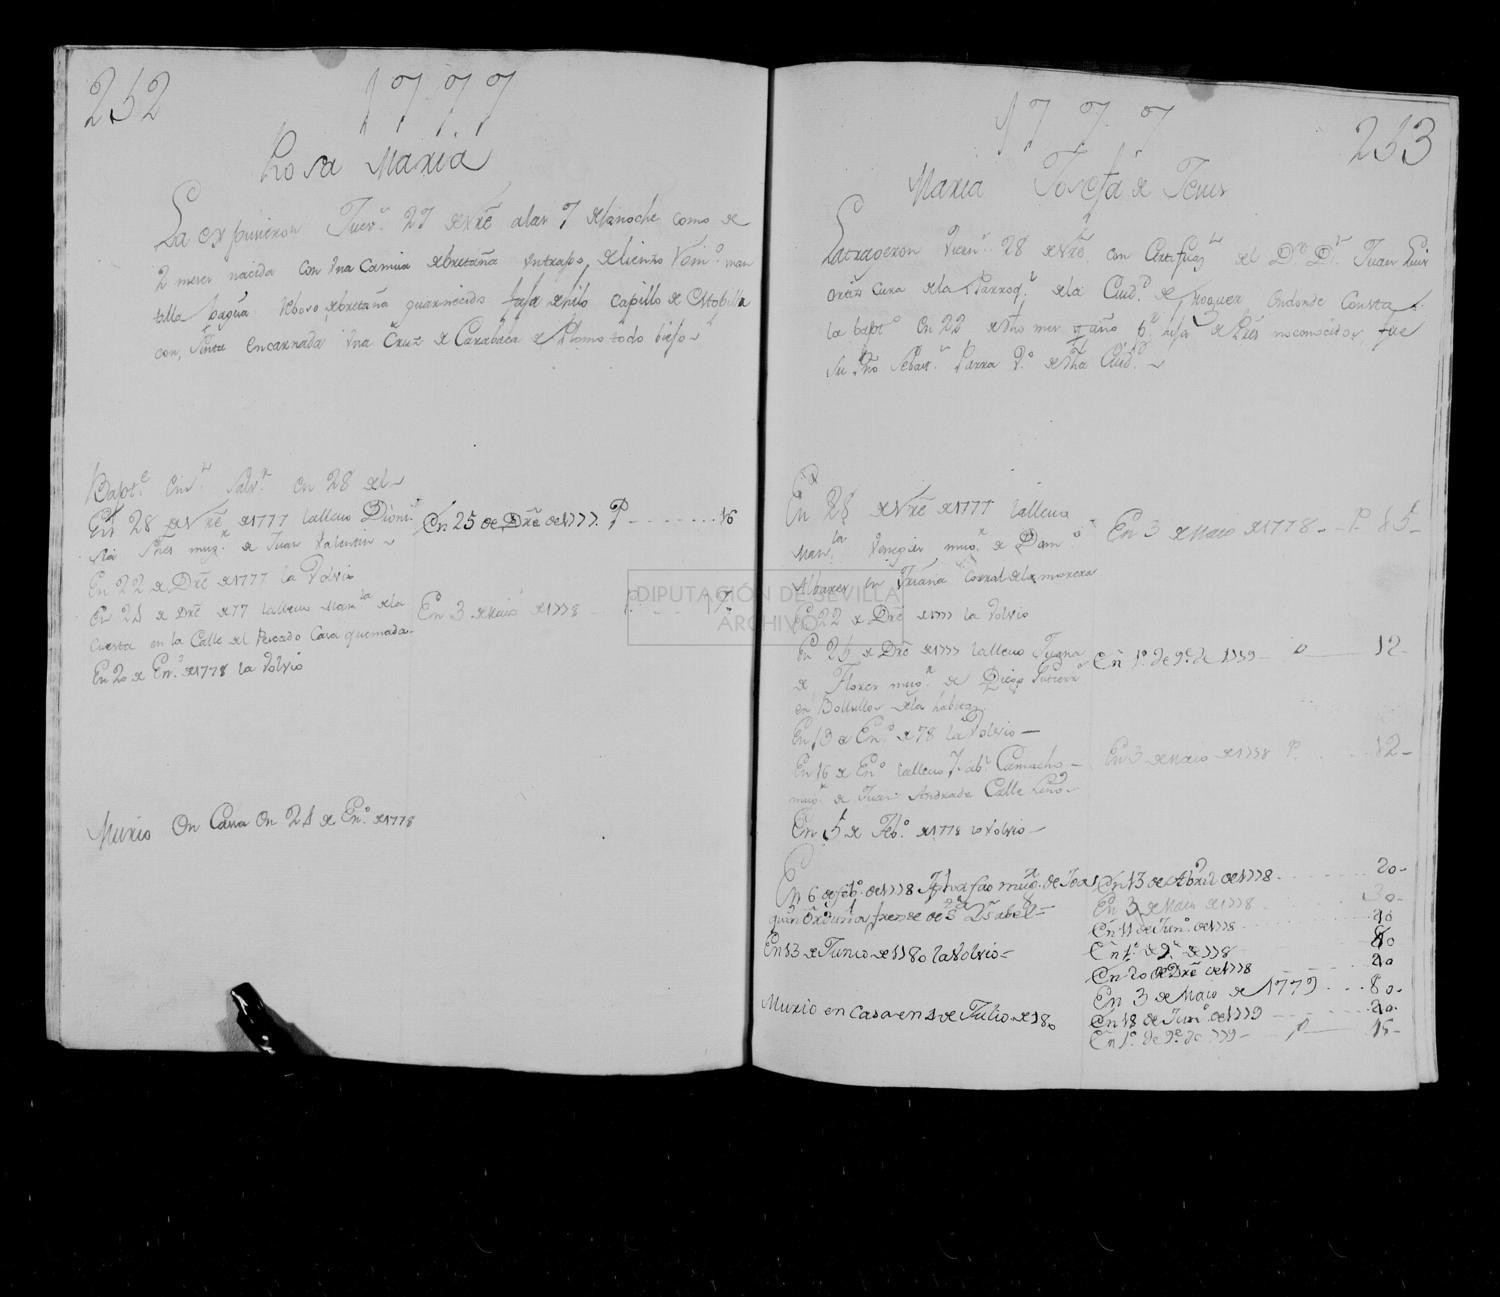 252
1777
Rosa Maria
La expusieron Juev.s 27 de Nre a las 7 de la noche como de
2 meses nacida con vna camisa de bretaña vntrapo de lienzo
bretaña guarnecido faja de hilo capillo de Estopilla
con Sinta encarnada vna Cruz de Carabaca de Plomo todo biejo
Bapt.e en 28 del
En 28 de Nre de 1777 la llevo Dioni
sia mug.r de Juan Valentin
En 22 de Dre de 1777 la Volvio
En 24 de Dre de 77 la llevo Man.la de la
Cuesta en la Calle del Pescado Casa quemada
En 20 de En.o de 1778 la Volvio
En 25 de Dre de 1777. P 16
En 3 de Maio de 1778 P. 17
Murio en Casa en 24 de En.o de 1778
DIPUTACIÓN DE SEVILLA
ARCHIVO
1777
253
Maria Josefa de Jesus
La trageron Viern.s 28 de Nre, con Certificaz.n del D.r D.n Juan Luis
cura de la Parroq.l de la Ciud.d de Moguer, endonde Consta
la bapt.o en 22 de dho mes y año p.r hija de Pres no conocidos, fue
su Pno Sebast.n Parra V.o de dha Ciud.d
En 28 de Nre de 1777 la llevo
Man.la Venegas mug.r de Dom.o
Albarez en Triana Corral de la morera
En 22 de Dre de 1777 la Volvio
En 25 de Dre de 1777 la llevo Juana
de Flores mug.r de Diego Gutierr.z
en Bollullos de la
En 13 de En.o de 78 la Volvio
En 16 de En.o la llevo Isab.l Camacho
mug.r de Juan Andrade Calle
En 5 de Feb.o de 1778 la Volvio
En 3 de Maio de 1778 P. 85
En 1.o de 9.e de 1779 P 12
En 3 de Maio de 1778 P. 12
En 6 de feb.o de 1778 mug.r de Joa
quin Orduña frente de S.ta Ysabel
En 13 de Junio de 1780 la Volvio
Murio en Casa en 4 de Julio de 180
En 13 de Abril de 1778 20
En 3 de Maio de 1778 30
En 11 de Jun.o de 1778 40
En 1.o de 9.e de 778
En 20 de Dre de 1778 40
En 3 de Maio de 1779 80
En 18 de Jun.o de 1779 40
En 1.o de 9.e de 779 P 15